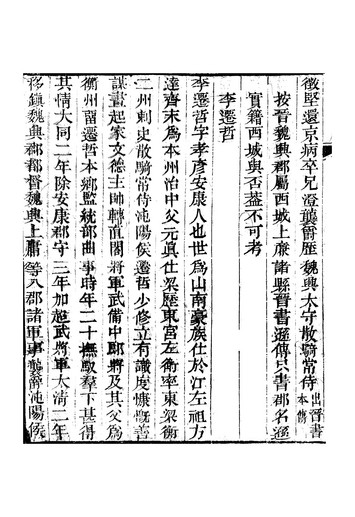 徵堅還京病卒兄澄襲爵歷魏興太守散騎常侍出晉書本傳
按晉魏興郡屬西城上庸諸縣晉書遜傳只書郡名遜
實籍西城與否蓋不可考
李遷哲
李遷哲字孝彥安康人也世爲山南豪族仕於江左祖方
達齊末爲本州治中父元眞仕梁歷東宮左衞率東梁衡
二州刺史散騎常侍沌陽侯遷哲少修立有識度慷慨善
謀畫起家文德主帥轉直閣將軍武備中郎將及其父爲
衡州留遷哲本鄉監統部曲事時年二十撫馭羣下甚得
其情大同二年除安康郡守三年加超武將軍太清二年
移鎮魏興郡都督魏興上庸等八郡諸軍事襲爵沌陽侯